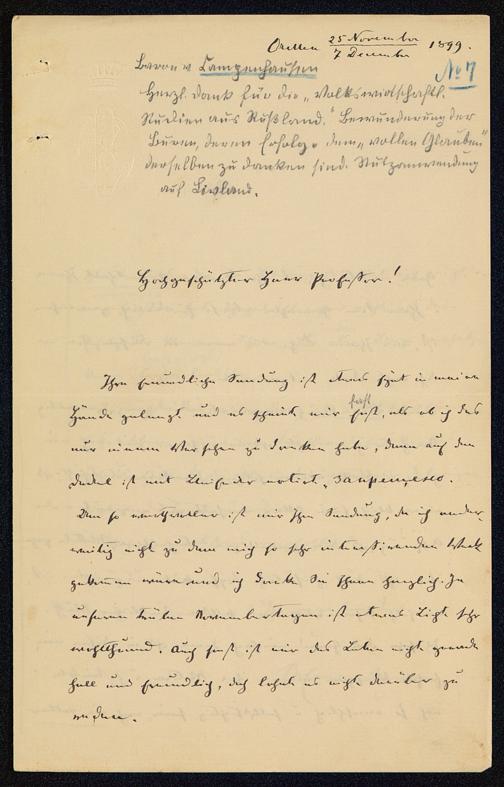 Orellen 25 November / 7 December 1899.
Baron v Campenhausen No 7
Herzl. Dank für die „Volkswirthschaftl.
Studien aus Rußland." Bewunderung der
Buren, deren Erfolge dem „vollen Glauben"
derselben zu danken sind. Nutzanwendung
auf Livland.
Hochgeschätzter Herr Professor!
Ihre freundliche Sendung ist etwas spät in meine
Hände gelangt und es scheint mir fast, als ob ich das
fast
nur einem Versehen zu danken habe, denn auf dem
Deckel ist mit Bleifeder notirt „запрещено.
Um so werthvoller ist mir Ihre Sendung, da ich ander-
weitig nicht zu dem mich so sehr interessirenden Werk
gekommen wäre und ich danke Sie schon herzlich. In
unseren trüben Novembertagen ist etwas Licht sehr
wohlthuend. Auch sonst ist mir das Leben nicht gerade
hell und freundlich, doch lohnt es nicht darüber zu
reden.